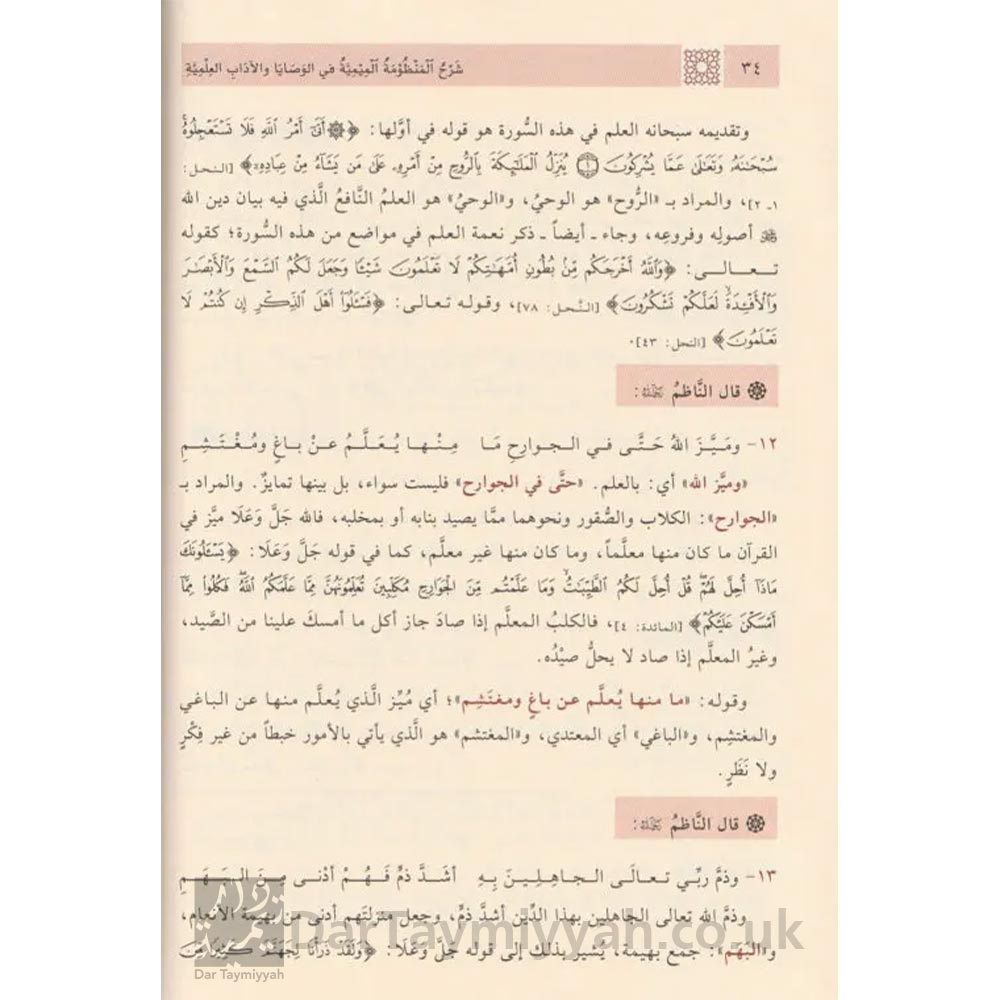 ٣٤ شَرْحُ ٱلْمَنْظُوْمَةُ ٱلْمِيْمِيَّةُ في الوَصَايَا والآدَابِ العِلْمِيَّةِ
وتقديمه سبحانه العلم في هذه السُّورة هو قوله في أوَّلها: ﴿أَتَىٰٓ أَمْرُ ٱللَّهِ فَلَا تَسْتَعْجِلُوهُ
سُبْحَٰنَهُۥ وَتَعَٰلَىٰ عَمَّا يُشْرِكُونَ ١ يُنَزِّلُ ٱلْمَلَٰٓئِكَةَ بِٱلرُّوحِ مِنْ أَمْرِهِۦ عَلَىٰ مَن يَشَآءُ مِنْ عِبَادِهِۦ﴾ [النحل:
١ـ ٢]، والمراد بـ «الرُّوح» هو الوحيُ، و«الوحيُ» هو العلمُ النَّافعُ الَّذي فيه بيان دين الله
ﷻ أصولِه وفروعِه، وجاء ـ أيضاً ـ ذكر نعمة العلم في مواضع من هذه السُّورة؛ كقوله
تعالى: ﴿وَٱللَّهُ أَخْرَجَكُم مِّنۢ بُطُونِ أُمَّهَٰتِكُمْ لَا تَعْلَمُونَ شَيْـًٔا وَجَعَلَ لَكُمُ ٱلسَّمْعَ وَٱلْأَبْصَٰرَ
وَٱلْأَفْـِٔدَةَ لَعَلَّكُمْ تَشْكُرُونَ﴾ [النَّحل: ٧٨]، وقوله تعالى: ﴿فَسْـَٔلُوٓا۟ أَهْلَ ٱلذِّكْرِ إِن كُنتُمْ لَا
تَعْلَمُونَ﴾ [النحل: ٤٣].
قال النَّاظمُ رَحِمَهُ اللَّهُ:
١٢- ومَيَّزَ اللهُ حَتَّى في الجوارِحِ مَا مِنْها يُعَلَّمُ عنْ باغٍ ومُغْتَشِمِ
«وميَّز الله» أي: بالعلم. «حتَّى في الجوارح» فليست سواء، بل بينها تمايزٌ. والمراد بـ
«الجوارح»: الكلاب والصُّقور ونحوهما ممَّا يصيد بنابه أو بمخلبه، فالله جَلَّ وَعَلَا ميَّز في
القرآن ما كان منها معلَّماً، وما كان منها غير معلَّم، كما في قوله جَلَّ وَعَلَا: ﴿يَسْـَٔلُونَكَ
مَاذَآ أُحِلَّ لَهُمْ قُلْ أُحِلَّ لَكُمُ ٱلطَّيِّبَٰتُ وَمَا عَلَّمْتُم مِّنَ ٱلْجَوَارِحِ مُكَلِّبِينَ تُعَلِّمُونَهُنَّ مِمَّا عَلَّمَكُمُ ٱللَّهُ فَكُلُوا۟ مِمَّآ
أَمْسَكْنَ عَلَيْكُمْ﴾ [المائدة: ٤]، فالكلبُ المعلَّم إذا صادَ جاز أكل ما أمسكَ علينا من الصَّيد،
وغيرُ المعلَّم إذا صاد لا يحلُّ صيْدُه.
وقوله: «ما منها يُعلَّم عن باغٍ ومغتَشِم»؛ أي مُيِّز الَّذي يُعلَّم منها عن الباغي
والمغتشِم، و«الباغي» أي المعتدي، و«المغتشم» هو الَّذي يأتي بالأمور خبطاً من غير فِكْرٍ
ولا نَظَرٍ.
قال النَّاظمُ رَحِمَهُ اللَّهُ:
١٣- وذمَّ ربِّي تعالَى الجاهِلِينَ بِهِ أشدَّ ذمٍّ فَهُمْ أدْنى مِنَ البَهَمِ
وذمَّ الله تعالى الجاهلين بهذا الدِّين أشدَّ ذمٍّ، وجعل منزلتَهم أدنى من بهيمة الأنعام،
و«البَهَم»: جمع بهيمة، يُشير بذلك إلى قوله جَلَّ وَعَلَا: ﴿وَلَقَدْ ذَرَأْنَا لِجَهَنَّمَ كَثِيرًا مِّنَ
DarTaymiyyah.co.uk
Dar Taymiyyah